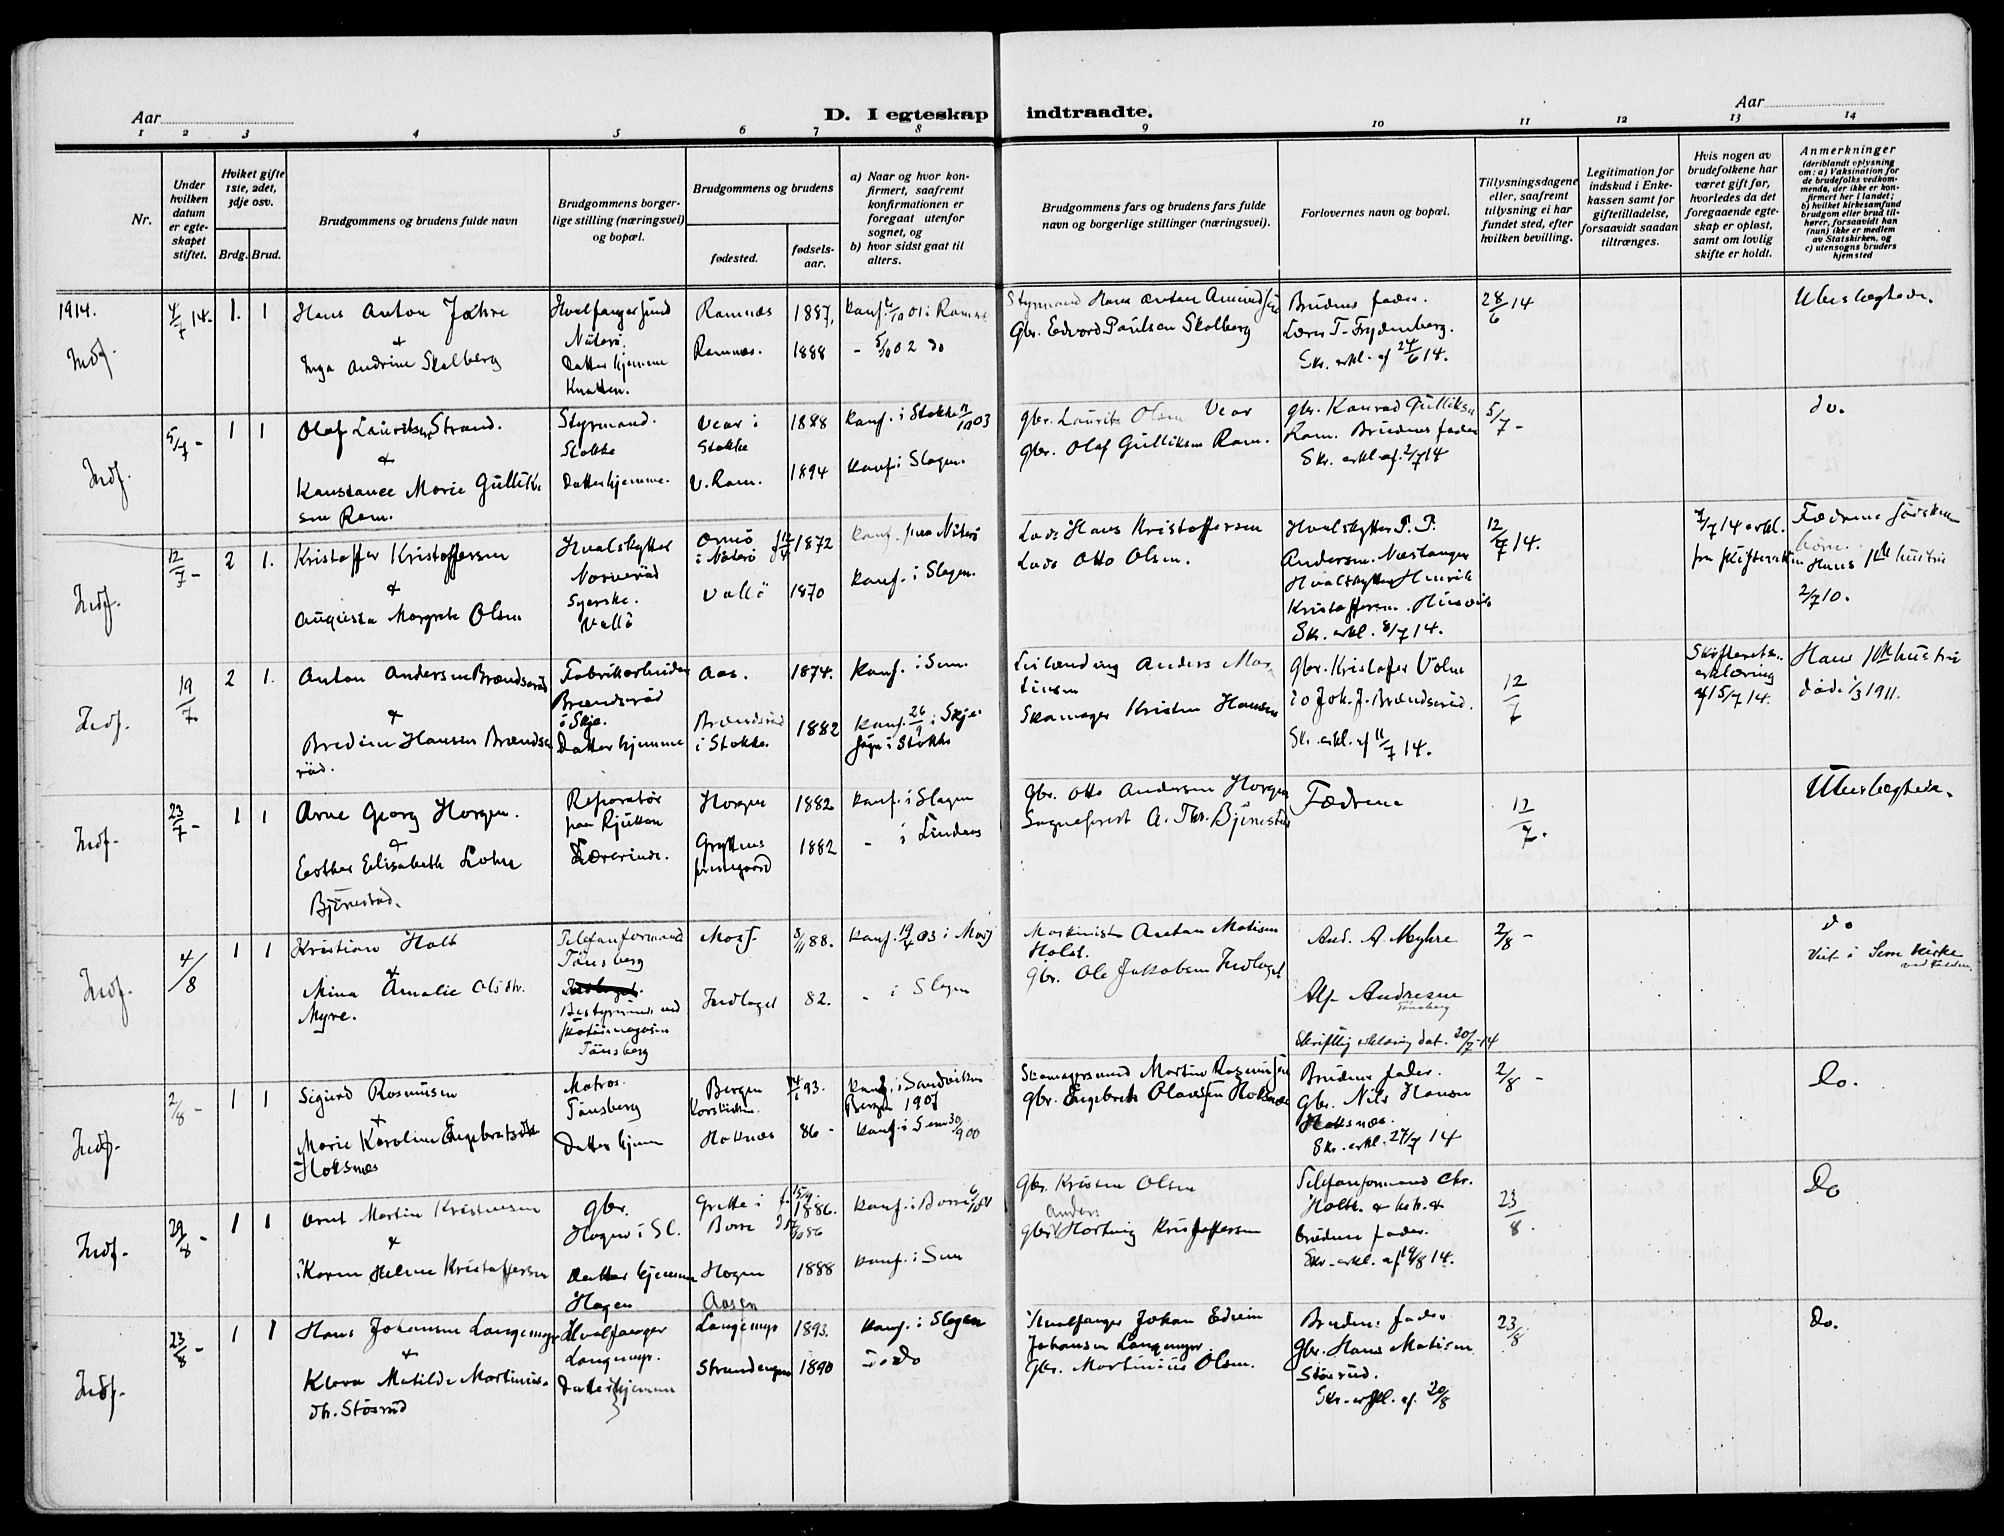 Aar
D. I egteskap indtraadte.
Aar
1 2 3 4 5 6 7 8 9 10 11 12 13 14
Nr.
Under
hvilken
datum
er egte-
skapet
stiftet.
Hviket gifte
1ste, 2det,
3dje osv.
Brdg. Brud.
Brudgommens og brudens fulde navn
Brudgommens borger-
lige stilling (næringsvei)
og bopæl.
Brudgommens og brudens
fødested.
fødsels-
aar.
a) Naar og hvor kon-
firmert, saafremt
konfirmationen er
foregaat utenfor
sognet, og
b) hvor sidst gaat til
alters.
Brudgommens fars og brudens fars fulde
navn og borgerlige stillinger (næringsvei).
Forlovernes navn og bopæl.
Tillysningsdagene
eller, saafremt
tillysning ei har
fundet sted, efter
hvilken bevilling.
Legitimation for
indskud i Enke-
kassen samt for
giftetilladelse,
forsaavidt saadan
tiltrænges.
Hvis nogen av
brudefolkene har
været gift før,
hvorledes da det
foregaaende egte-
skap er opløst,
samt om lovlig
skifte er holdt.
Anmerkninger
(deriblandt oplysning
om: a) Vaksination for
de brudefolks vedkom-
mende, der ikke er kon-
firmert her i landet;
b) hvilket kirkesamfund
brudgom eller brud til-
hører, forsaavidt han
(hun) ikke er medlem
av Statskirken, og
c) utensogns bruders
hjemsted
1914.
Indf.
4/7 14. 1. 1
Hans Anton Jahre
+
Inga Andrine Skalberg
Hvalfangerfuld
Nøterø.
Datter hjemme
Knatten.
Ramnæs 1887,
Ramnæs. 1888
Konf. 6/10 01 i Ramnæs
- 5/10 02 do
Styrmand Hans Anton
Gbr. Edvard Paulsen Skalberg
Brudens fader.
Lærer T. Frydenberg.
Skr. erkl. af 24/6 14.
28/6 14
Ubeslægtede.
Indf.
5/7 - 1 1
Olaf Lauritsen Strand.
+
Konstance Marie Gullik
sen Ram.
Styrmand.
Stokke
Datter hjemme.
Vear i
Stokke
1888
V. Ram. 1894
Konf. i Stokke 11/10 03
Konf. i Slagen.
gbr. Laurits Olsen Vear
gbr. Olaf Gulliksen Ram.
gbr. Konrad Gulliksen
Ram. Brudens fader
Skr. erkl. af. 2/7 14
5/7 -
do.
Indf.
12/7 - 2 1.
Kristoffer Kristoffersen
+
Augusta Margrete Olsen
Hvalskytter
Narverød
Syerske.
Vallø
Ormø
i Nøterø
1872
Vallø 1870
Konf. paa Nøterø
Konf. i Slagen.
Lods Hans Kristoffersen
Lods Otto Olsen.
Hvalskytter P. P.
Andersen. Næstangen
Hvalskytter Henrik
Kristoffersen. Husvik
Skr. erkl. 8/7 14.
12/7 14.
7/7 14 erkl.
fra skifteretten
Fædrene Søsken
børn.
Hans 1ste hustru
2/7 10.
Indf.
19/7 2 1.
Anton Andersen Brændsrød
+
Bredine Hansen Brænds
rød.
Fabrikarbeider
Brændsrød
i Skje.
Datter hjemme
Aas. 1874.
Brændsrød
i Stokke.
1882
Konf. i Sem.
Konf. 26/9 i Skje
sogn i Stokke
Leilænding Anders Mar
tinsen
Skomager Kristen Hansen
Gbr. Kristofer Volen
Do Joh. J. Brændsrød.
Skr. erkl. af 11/7 14.
12/7
Skifterets
erklæring
af 15/7 14.
Hans 1ste hustru
døde 1/3 1911.
Indf.
23/7 - 1 1
Arne Georg Horgen.
+
Esther Elisabeth Lohne
Bjönestad.
Reparatør
paa Rjukan
Lærerinde.
Horgen 1882
Gryttens
prestegaard
1882
Konf. i Slagen
- i Lindaas
Gbr. Otto Andersen Horgen
Sogneprest A. Thr. Bjönestad
Fædrene
12/7.
Ubeslægtede.
Indf.
4/8 1 1
Kristian Holt
+
Mina Amalie Olsdtr.
Myre.
Telefonformand
Tönsberg
Bestyrerinde ved
skotöimagasin
Tönsberg
Moss. 3/11 88.
Indlaget 82.
Konf. 19/4 03 i Moss
- i Slagen
Maskinist Anton Matisen
Holst.
Gbr. Ole Jakobsen Indlaget
And. A. Myhre
Alf Andresen
Tönsberg
Skriftlig erklæring dat. 20/7 - 14
2/8 -
do
Viet i Sem Kirke
Indf.
2/8 - 1 1
Sigurd Rasmussen
+
Marie Karoline Engebretsdtr
Hoksnæs
Matros.
Tönsberg
Datter hjem
Bergen
Korskirken.
93.
Hoksnæs 86 -
Konf. i Sandviken
Bergen 1907
Konf. i Sem 30/9 00
Skomagersvend Martin Rasmussen
gbr. Engebret Olausen Hoksnæs
Brudens fader.
Gbr. Nils Hansen
Hoksnæs.
Skr. erkl. 27/7 14
2/8 -
Do.
Indf.
29/8 - 1 1
Arnt Martin Kristensen
+
Karen Helene Kristoffersen
gbr.
Hogsn i Sl.
Datter hjemme
Hagen
Grette i
Borre
f. 15/9 1886.
Hogsn
Aasen
1888
Konf. i Borre
Konf. i Sem
Gbr. Kristen Olsen
Anders
gbr. Hartvig Kristoffersen
Telefonformand Chr.
Holt.
brudens fader.
Skr. erkl. af 19/8 14.
23/8.
Do
Indf.
23/8 - 1 1
Hans Johansen Langemyr
+
Klara Matilde Martinius-
dtr. Stösrud
Hvalfanger
Langemyr.
Datter hjemme
Langemyr 1893.
Strandengen 1890
Konf. i Slagen
do
Hvalfanger Johan Edvin
Johansen Langemyr.
Gbr. Martinius Olsen.
Brudens fader
Gbr. Hans Matisen
Stösrud.
Skr. erkl. af. 20/8
23/8
Do.